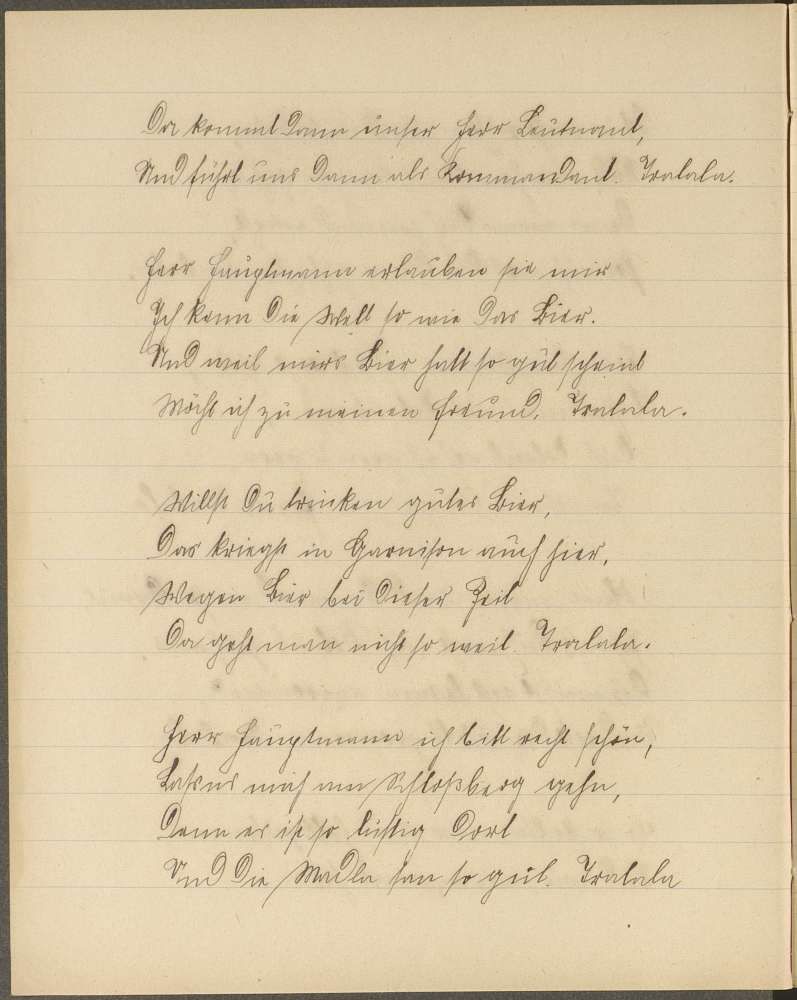 Da kommt dann unser Herr Leutnant,
Und führt uns dann als Kommandant. Tralala.
Herr Hauptmann erlauben sie mir
Ich kenn die Welt so wie das Bier.
Und weil mirs Bier halt so gut scheint
Möcht ich zu meinen Freund. Tralala.
Willst du trinken gutes Bier,
Das kriegst in Garnison auch hier.
Wegen Bier bei dieser Zeit
Da geht man nicht so weit. Tralala.
Herr Hauptmann ich bitt recht schön,
Lassns mich am Schloßberg gehn,
Denn es ist so lustig dort
Und die Madla san so gut. Tralala